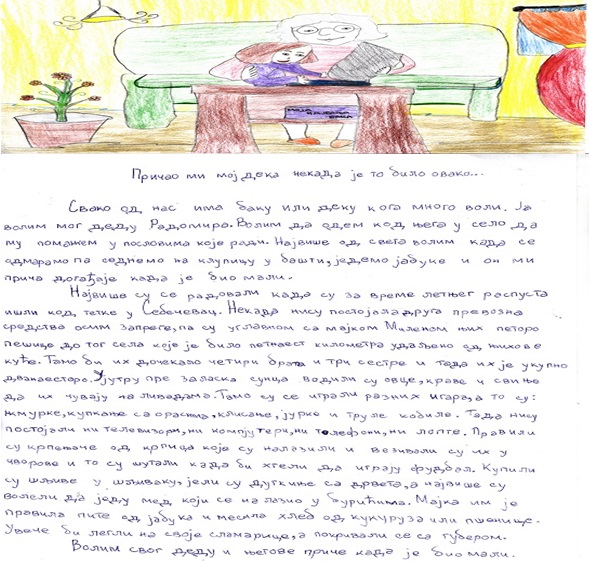 МОЈА ВОЉЕНА БАКА
Причао ми мој дека некада је то било овако...
Свако од нас има баку или деку кога много воли. Ја
волим мог деду Радомира. Волим да одем код њега у село да
му помажем у пословима које ради. Највише од света волим када се
одмарамо па седнемо на клупицу у башти, једемо јабуке и он ми
прича догађаје када је био мали.
Највише су се радовали када су за време летњег распуста
ишли код тетке у Себечевац. Некада нису постојала друга превозна
средства осим запреге, па су углавном са мајком Миленом њих петоро
пешице до тог села које је било петнаест километра удаљено од њихове
куће. Тамо би их дочекало четири брата и три сестре и тада их је укупно
дванаесторо. Ујутру пре заласка сунца водили су овце, краве и свиње
да их чувају на ливадама. Тамо су се играли разних игара, а то су:
жмурке, купкање са орасима, клисање, јурке и труле кобиле. Тада нису
постојали ни телевизори, ни компјутери, ни телефони, ни лопте. Правили
су крпењаче од крпица које су налазили и везивали су их у
чворове и то су шутали када би хтели да играју фудбал. Купили
су шљиве у шљиваку, јели су дуткиње са дрвета, а највише су
волели да једу мед који се налазио у ђурићима. Мајка им је
правила пите од јабука и месила хлеб од кукуруза или пшенице.
Увече би легли на своје сламарице, а покривали се са губером.
Волим свог деду и његове приче када је био мали.